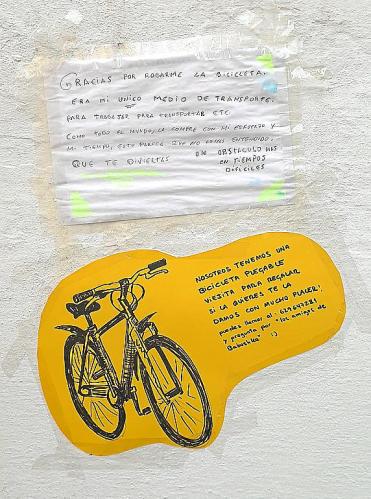 GRACIAS POR ROBARME LA BICICLETA.
ERA MI UNICO MEDIO DE TRANSPORTE.
PARA TRABAJAR PARA TRANSPORTAR ETC.
COMO TODO EL MUNDO, LA COMPRE CON MI ESFUERZO Y
MI TIEMPO, ESTO PARECE QUE NO LO HAS ENTENDIDO.
QUE TE DIVIERTAS
UN OBSTACULO MAS
EN TIEMPOS
DIFICILES
NOSOTROS TENEMOS UNA
BICICLETA PLEGABLE
VIEJITA PARA REGALAR
SI LA QUIERES TE LA
DAMOS CON MUCHO PLACER.
puedes llamar al:
y pregunta por "los amigos de
Babushka" :)